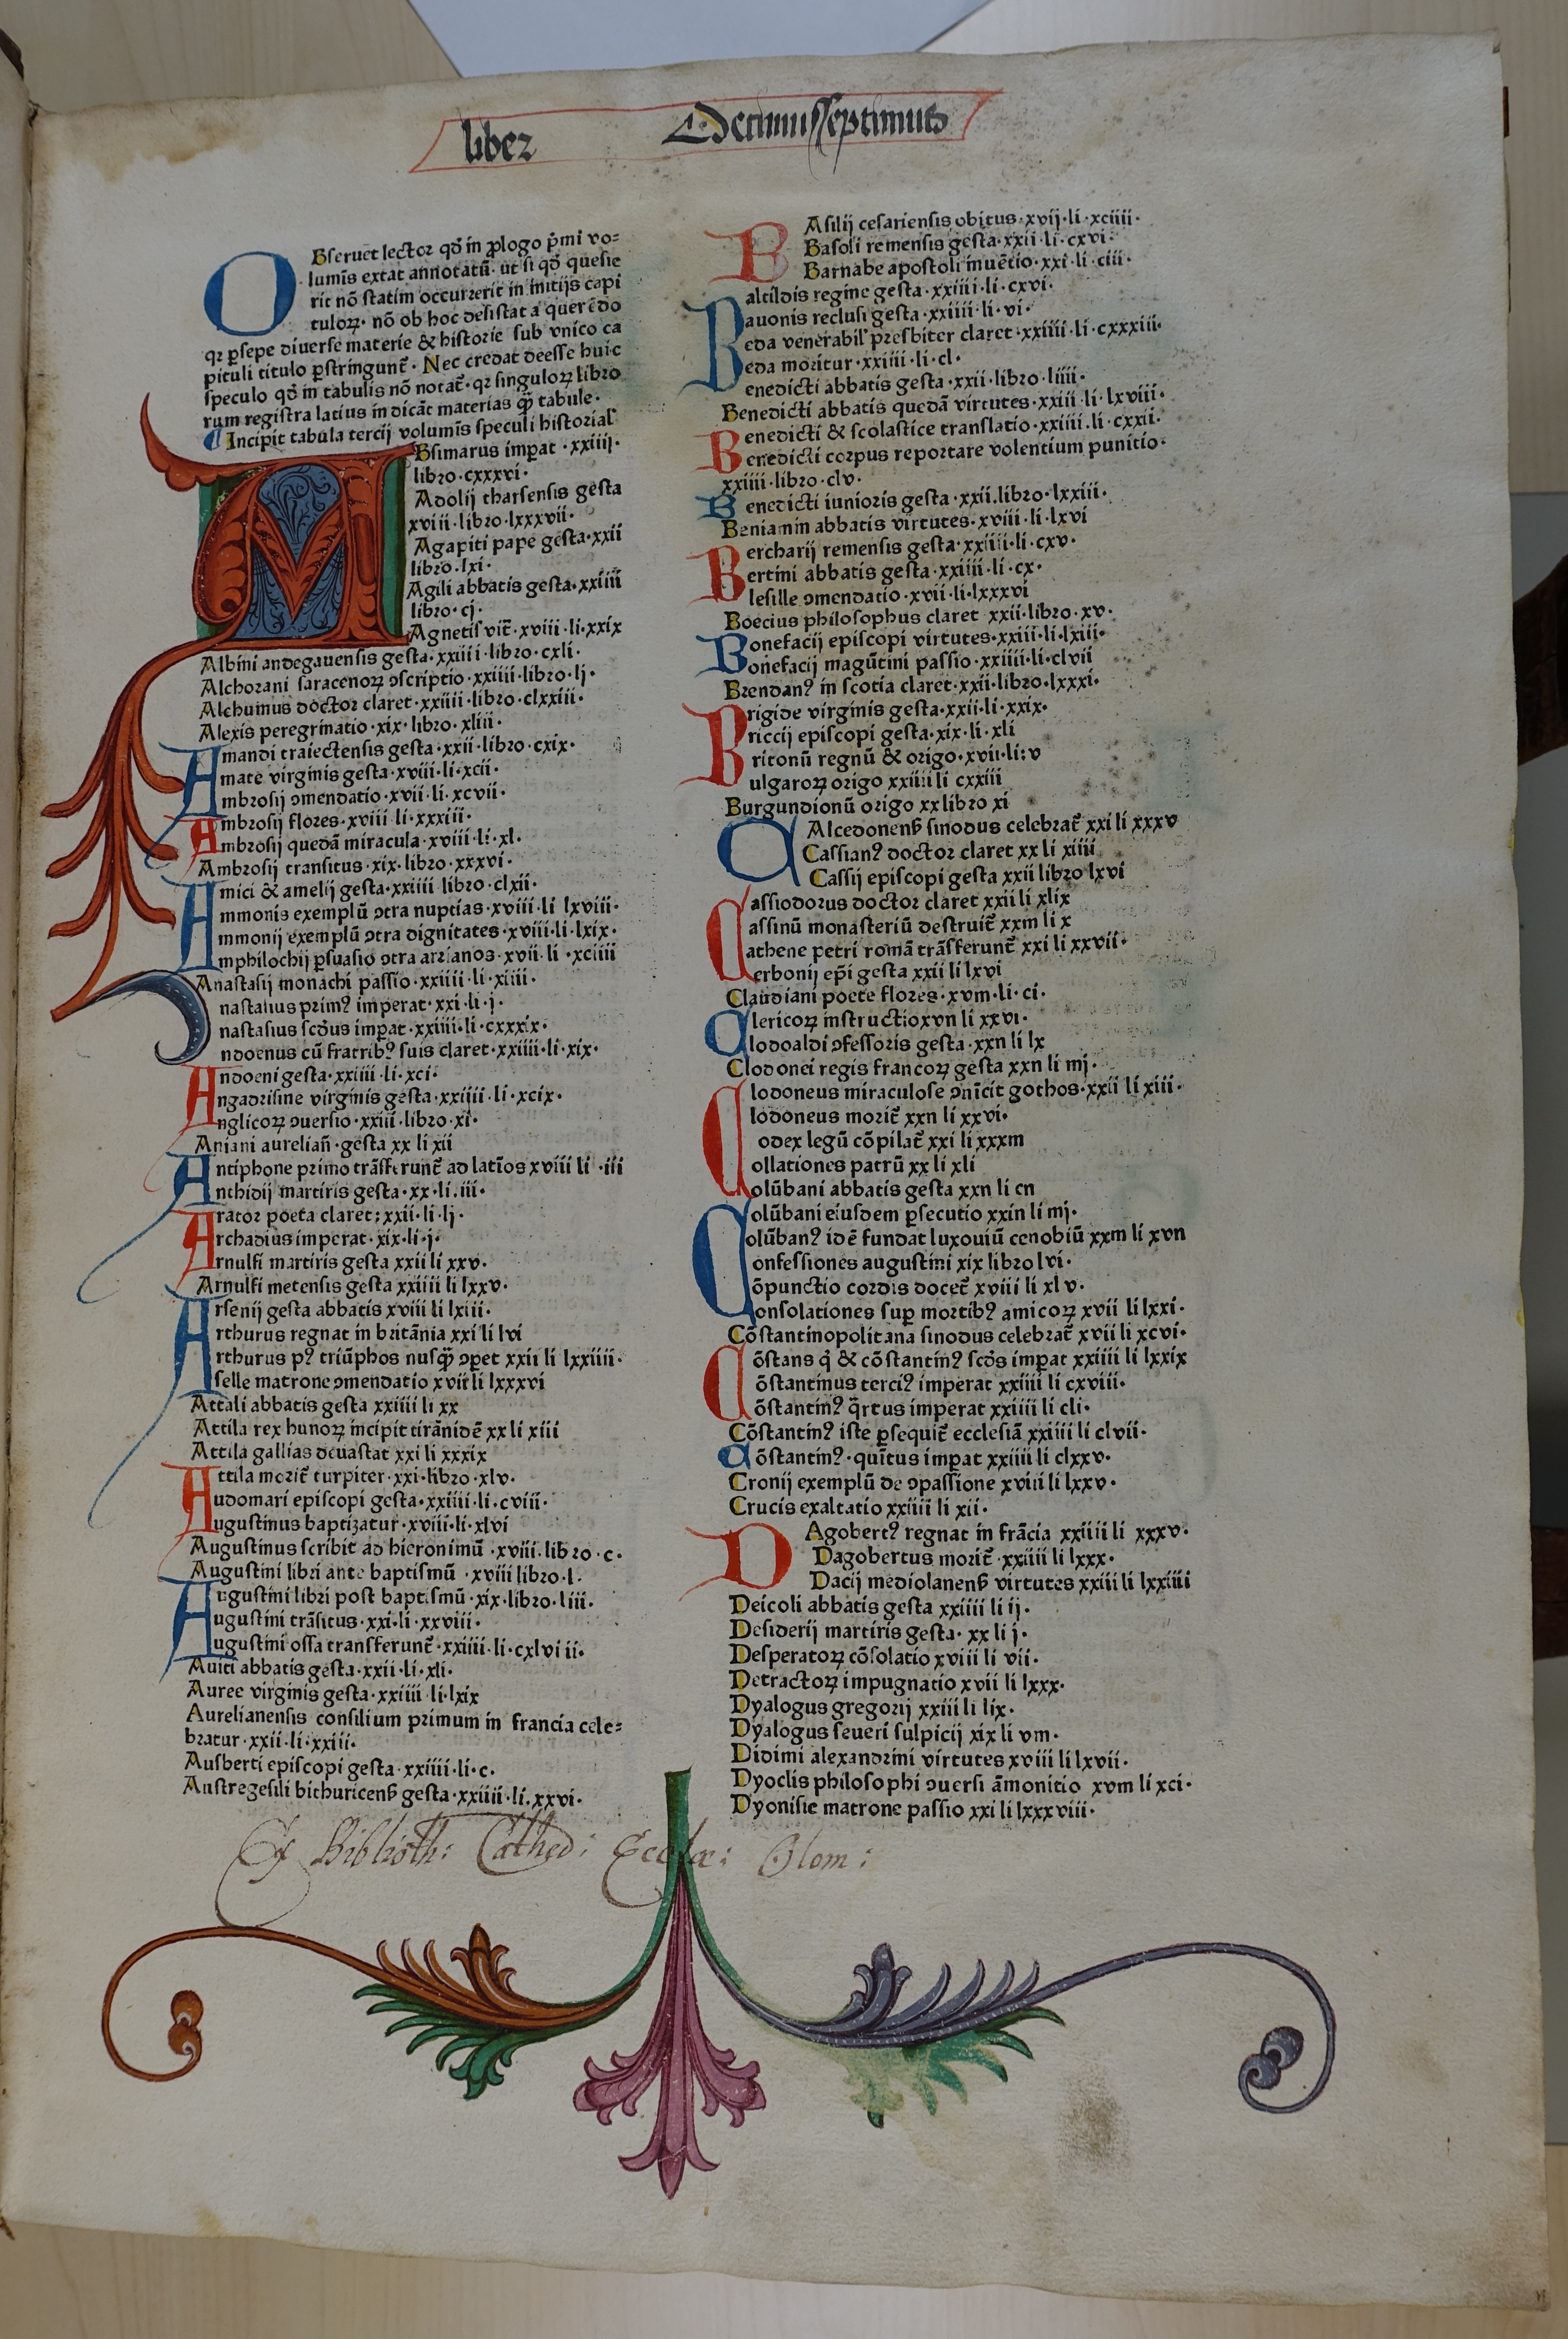 liber Decimusseptimus
OBseruet lector qđ in ꝓlogo p̄mi vo⸗
lumīs extat annotatū· ut si qđ quesie
rit nō statim occurrerit in initijs capi
tuloꝝ· nō ob hoc desistat a querēdo
qꝛ ꝑsepe diuerse materie & historie sub vnico ca
pituli titulo ꝑstringunt̄· Nec credat deesse huic
speculo qđ in tabulis nō notat̄· qꝛ singuloꝝ libro
rum registra latius indicāt materias q̄ꝫ tabule·
¶ Incipit tabula tercij volumīs speculi historial'
ABsimarus imꝑat ·xxiiij·
libro·cxxxvi·
Adolij tharsensis gesta
xviii·libro·lxxxvii·
Agapiti pape gesta·xxii
libro·lxi·
Agili abbatis gesta·xxiiii
libro·cj·
Agnetis vit̄·xviii·li·xxix
Albini andegauensis gesta·xxiiii·libro·cxli·
Alchorani saracenoꝝ ɔscriptio·xxiiii·libro·lj·
Alchuinus doctor claret·xxiiii·libro·clxxiii·
Alexis peregrinatio·xix·libro·xliii·
Amandi traiectensis gesta·xxii·libro·cxix·
Amate virginis gesta·xviii·li·xcii·
Ambrosij ɔmendatio·xvii·li·xcvii·
Ambrosij flores·xviii li·xxxiii·
Ambrosij quedā miracula·xviii·li·xl·
Ambrosij transitus·xix·libro·xxxvi·
Amici & amelij gesta·xxiiii libro·clxii·
Ammonis exemplū ɔtra nuptias·xviii·li lxviii·
Ammonij exemplū ɔtra dignitates·xviii·li·lxix·
Amphilochij ꝑsuasio ɔtra arrianos·xvii·li·xciiii
Anastasij monachi passio·xxiiii·li·xiiii·
Anastasius primꝰ imperat·xxi·li·j·
Anastasius scđus imꝑat·xxiiii·li·cxxxix·
Andoenus cū fratribꝰ suis claret·xxiiii·li·xix·
Andoeni gesta·xxiiii·li·xci·
Angadrisine virginis gesta·xxiiii·li·xcix·
Anglicoꝝ ɔuersio·xxiii·libro·xi·
Aniani aureliañ·gesta xx li xii
Antiphone primo trāsferunt̄ ad latīos xviii li ·iii
Anthidij martiris gesta·xx·li·iii·
Arator poeta claret;xxii·li·lj·
Archadius imperat·xix·li·j·
Arnulfi martiris gesta xxii li xxv·
Arnulfi metensis gesta xxiiii li lxxv·
Arsenij gesta abbatis xviii li lxiii·
Arthurus regnat in britānia xxi li lvi
Arthurus pꝰ triūphos nusq̄ꝫ ɔꝑet xxii li lxxiiii·
Aselle matrone ɔmendatio xvii li lxxxvi
Attali abbatis gesta xxiiii li xx
Attila rex hunoꝝ incipit tirānidē xx li xiii
Attila gallias deuastat xxi li xxxix
Attila morit̄ turpiter·xxi·libro·xlv·
Audomari episcopi gesta·xxiiii·li·cviii·
Augustinus baptizatur·xviii·li·xlvi
Augustinus scribit ad hieronimū·xviii·libro·c·
Augustini libri ante baptismū·xviii libro·l·
Augustini libri post baptismū·xix·libro·liii·
Augustini trāsitus·xxi·li·xxviii·
Augustini ossa transferunt̄·xxiiii·li·cxlviii·
Auiti abbatis gesta·xxii·li·xli·
Auree virginis gesta·xxiiii·li·lxix
Aurelianensis consilium primum in francia cele⸗
bratur·xxii·li·xxiii·
Ausberti episcopi gesta·xxiiii·li·c·
Austregesili bithuricenß gesta·xxiiii·li·xxvi·
BAsilij cesariensis obitus·xvij·li·xciiii·
Basoli remensis gesta·xxii·li·cxvi·
Barnabe apostoli inuētio·xxi·li·ciii·
Baltildis regine gesta·xxiiii·li·cxvi·
Bauonis reclusi gesta·xxiiii·li·vi·
Beda venerabil' presbiter claret·xxiiii·li·cxxxiii·
Beda moritur·xxiiii·li·cl·
Benedicti abbatis gesta·xxii·libro·liiii·
Benedicti abbatis quedā virtutes·xxiii·li·lxviii·
Benedicti & scolastice translatio·xxiiii·li·cxxii·
Benedicti corpus reportare volentium punitio·
xxiiii·libro·clv·
Benedicti iunioris gesta·xxii·libro·lxxiii·
Beniamin abbatis virtutes·xviii·li·lxvi
Bercharij remensis gesta·xxiiii·li·cxv·
Bertini abbatis gesta·xxiiii·li·cx·
Blesille ɔmendatio·xvii·li·lxxxvi
Boecius philosophus claret xxii·libro·xv·
Bonefacij episcopi virtutes·xxiii·li·lxiii·
Bonefacij magūtini passio·xxiiii·li·clvii
Brendanꝰ in scotia claret·xxii·libro·lxxxi·
Brigide virginis gesta·xxii·li·xxix·
Briccij episcopi gesta·xix·li·xli
Britonū regnū & origo·xvii·li:v
Bulgaroꝝ origo xxiiii li cxxiii
Burgundionū origo xx libro xi
CAlcedonenß sinodus celebrat̄ xxi li xxxv
Cassianꝰ doctor claret xx li xiiii
Cassij episcopi gesta xxii libro lxvi
Cassiodorus doctor claret xxii li xlix
Cassinū monasteriū destruit̄ xxm li x
Cathene petri romā trāsferunt̄ xxi li xxvii·
Cerbonij ep̄i gesta xxii li lxvi
Claudiani poete flores·xvm·li·ci·
Clericoꝝ instructio xvn li xxvi·
Clodoaldi ɔfessoris gesta·xxn li lx
Clodonei regis francoꝝ gesta xxn li mj·
Clodoneus miraculose ɔnīcit gothos·xxii li xiii·
Clodoneus morit̄ xxn li xxvi·
Codex legū cōpilat̄ xxi li xxxm
Collationes patrū xx li xli
Colūbani abbatis gesta xxn li cn
Colūbani eiusdem ꝑsecutio xxin li mj·
Colūbanꝰ idē fundat luxouiū cenobiū xxm li xvn
Confessiones augustini xix libro lvi·
Cōpunctio cordis docet̄ xviii li xlv·
Consolationes suꝑ mortibꝰ amicoꝝ xvii li lxxi·
Cōstantinopolitana sinodus celebrat̄ xvii li xcvi·
Cōstans q̇ & cōstantinꝰ scđs imꝑat xxiiii li lxxix
Cōstantinus terciꝰ imperat xxiiii li cxviii·
Cōstantinꝰ q̄rtus imperat xxiiii li cli·
Cōstantinꝰ iste ꝑsequit̄ ecclesiā xxiiii li clvii·
Cōstantinꝰ·quītus imꝑat xxiiii li clxxv·
Cronij exemplū de ɔpassione xviii li lxxv·
Crucis exaltatio xxiiii li xii·
DAgobertꝰ regnat in frācia xxiiii li xxxv·
Dagobertus morit̄·xxiiii li lxxx·
Dacij mediolanenß virtutes xxiii li lxxiiii
Deicoli abbatis gesta xxiiii li ij·
Desiderij martiris gesta· xx li j·
Desperatoꝝ cōsolatio xviii li vii·
Detractoꝝ impugnatio xvii li lxxx·
Dyalogus gregorij xxiii li lix·
Dyalogus seueri sulpicij xix li vm·
Didimi alexandrini virtutes xviii li lxvii·
Dyoclis philosophi ɔuersi āmonitio xvm li xci·
Dyonisie matrone passio xxi li lxxxviii·
Ex Biblioth: Cathed: Eccłæ: Olom: